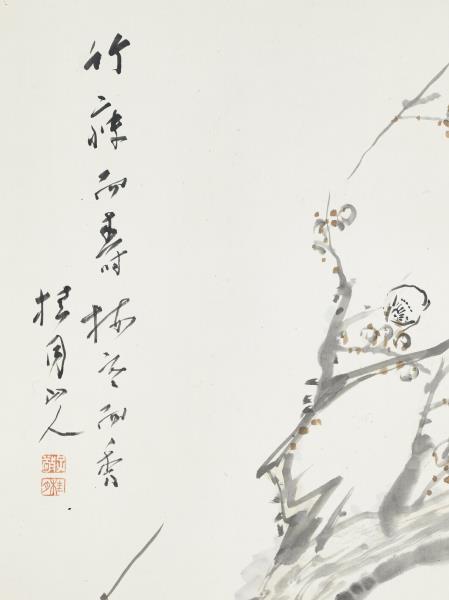 竹瘦而壽梅寒而秀
桂月山人